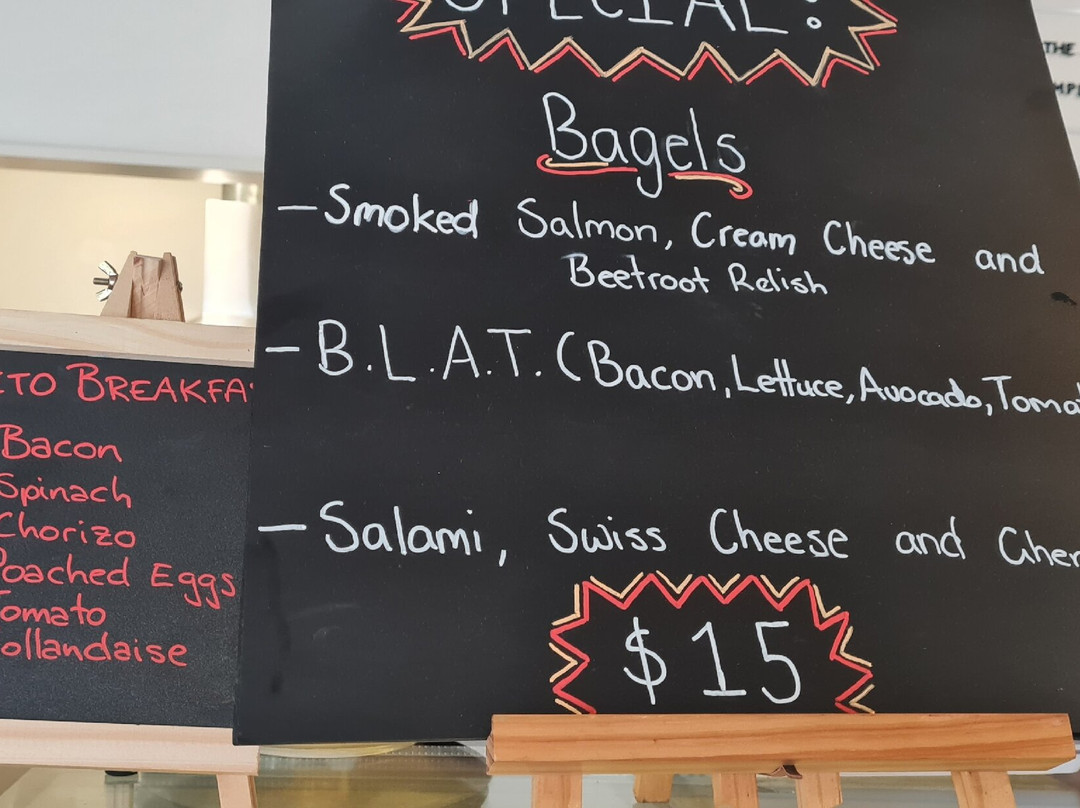 SPECIAL!
Bagels
- Smoked Salmon, Cream Cheese and
Beetroot Relish
- B.L.A.T. (Bacon, Lettuce, Avocado, Tomat
- Salami, Swiss Cheese and Gher
$15
ETO BREAKFA
Bacon
Spinach
Chorizo
Poached Eggs
Tomato
ollandaise
THE